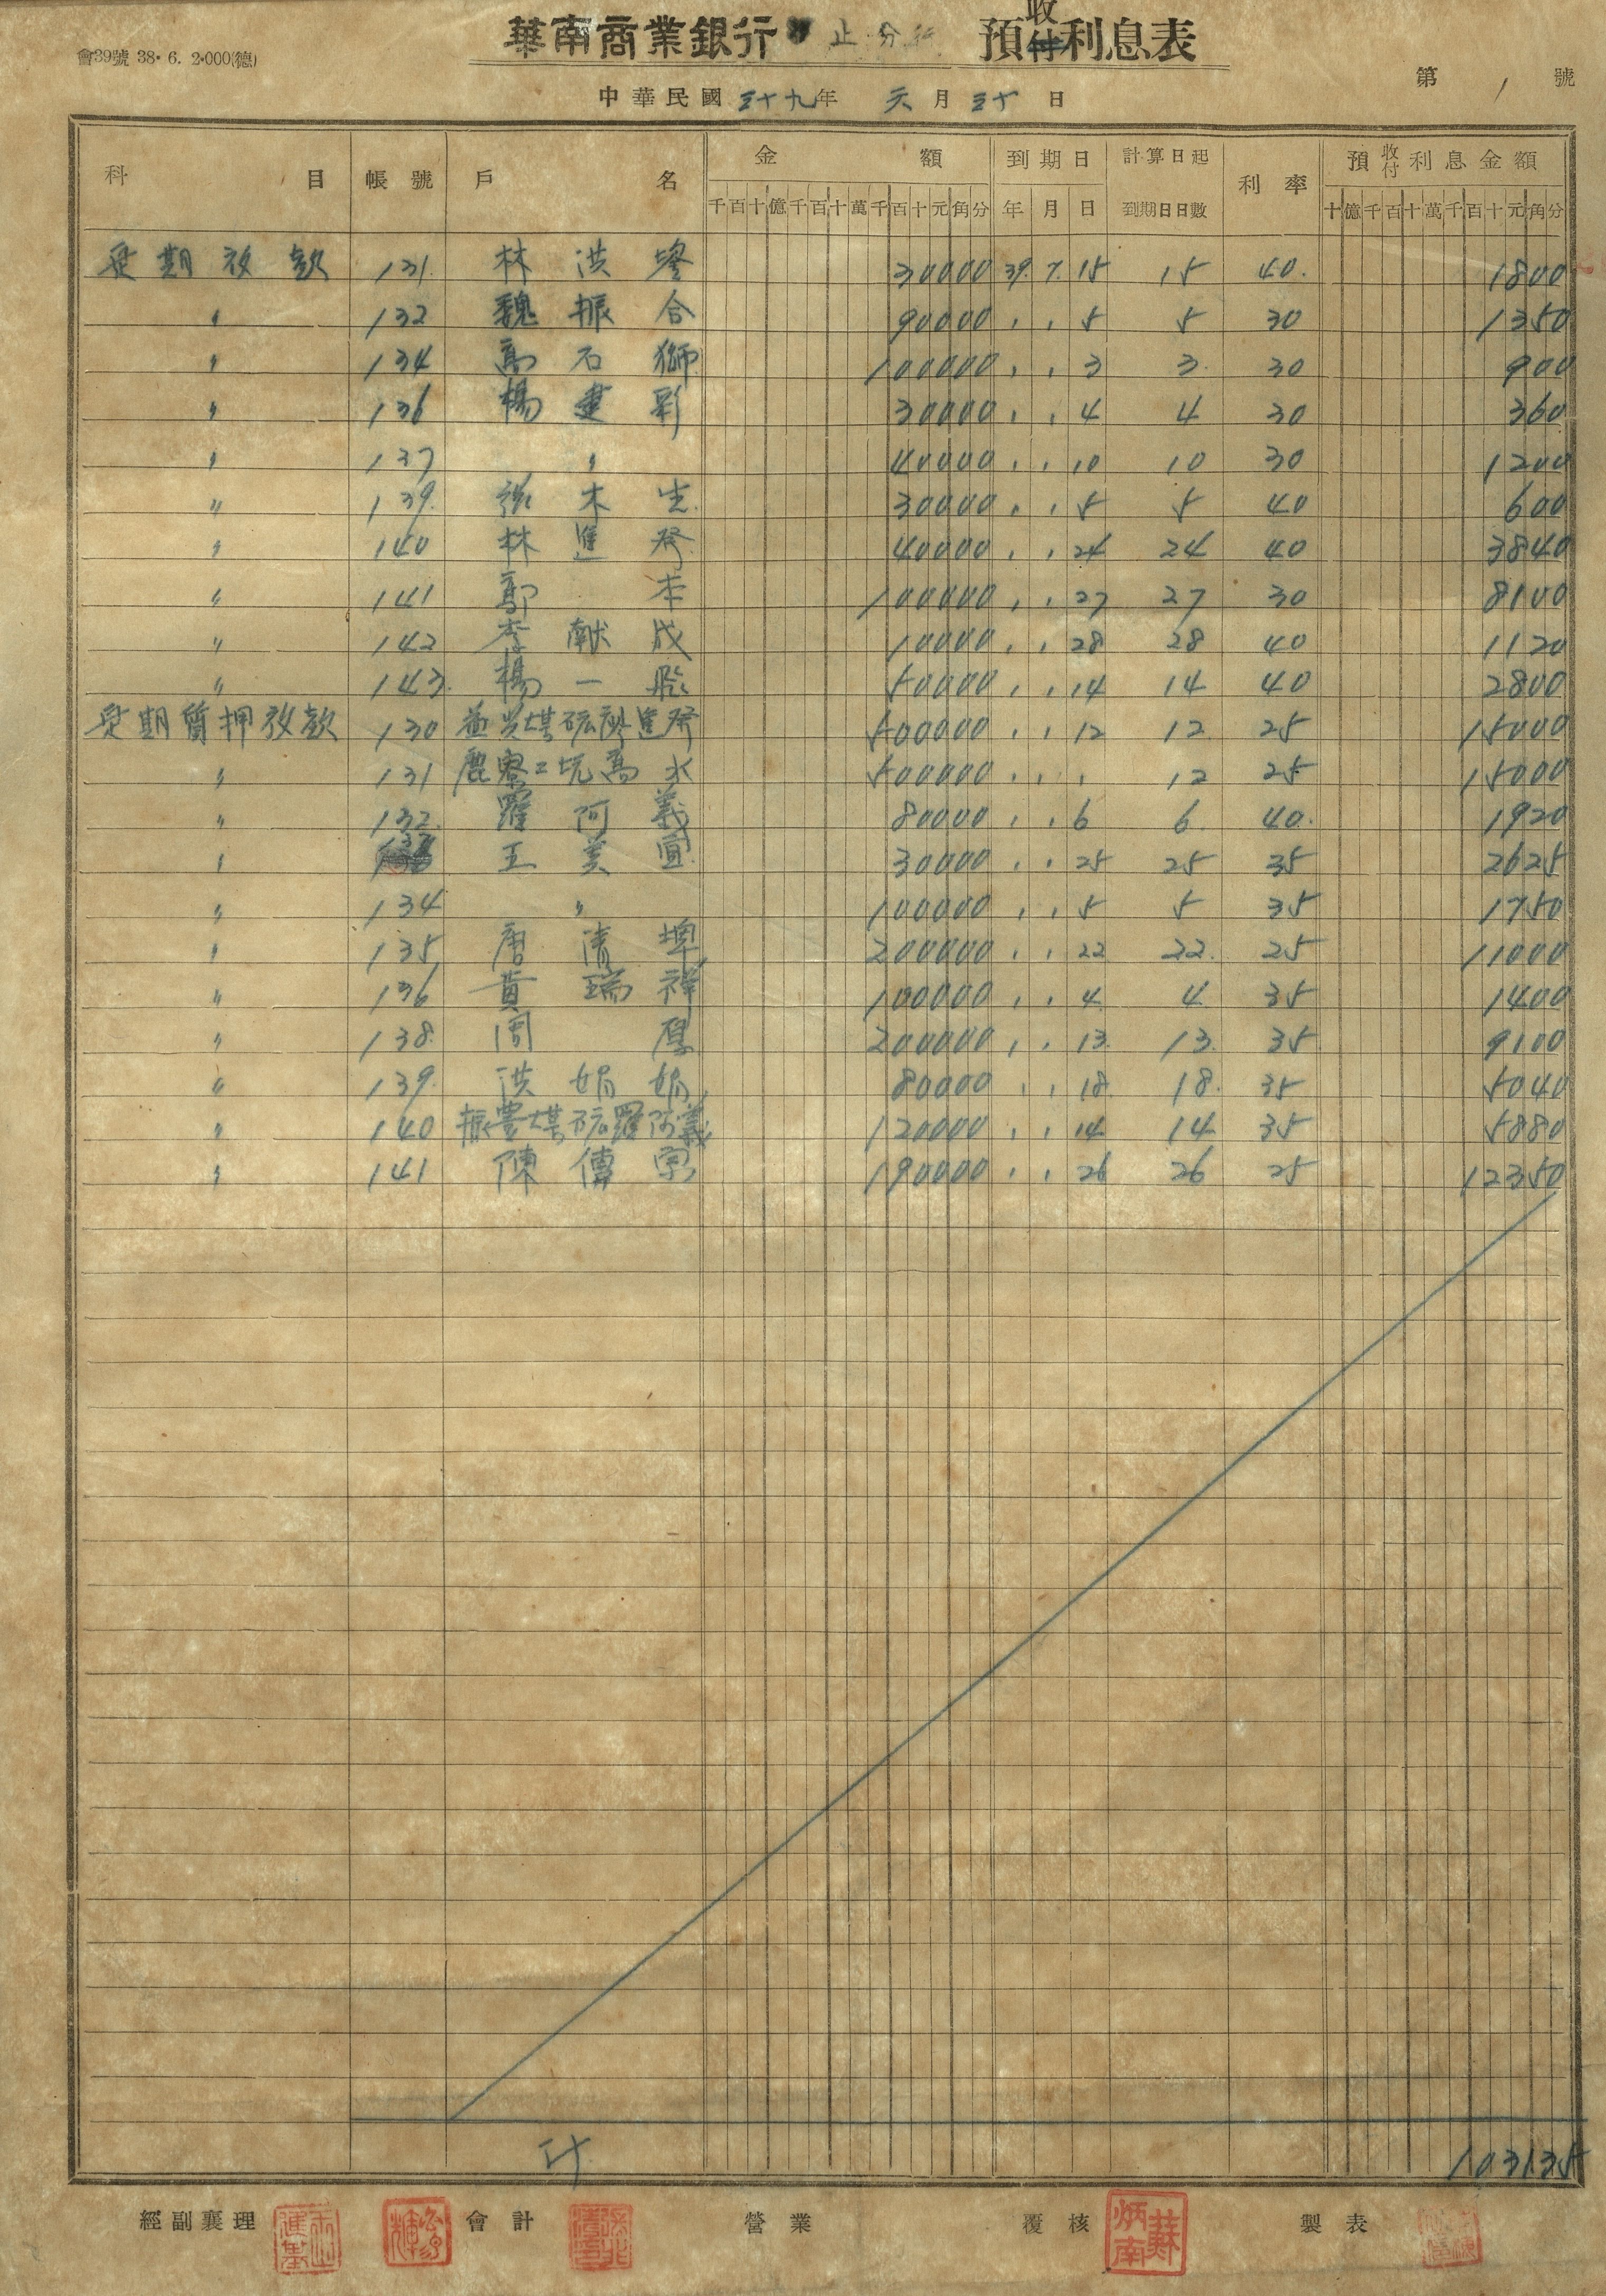 華南商業銀行 止分行 預收付利息表
會39號 38·6. 2·000(德)
第 1 號
中華民國三十九年 六月三十日
科目 帳號 戶名 金額 到期日 計算日起到期日日數 利率 預收付利息金額
千百十億千百十萬千百十元角分 年 月 日 十億千百十萬千百十元角分
定期放款 131. 林洪 30000 39. 7. 15 15 40. 1800
〃 132 魏振合 90000 〃 〃 5 5 30 1350
〃 134 高石獅 100000 〃 〃 3 3. 30 900
〃 136 楊建彰 30000 〃 〃 4 4 30 360
〃 137 〃 40000 〃 〃 10 10 30 1200
〃 139. 張木生 30000 〃 〃 5 5 40 600
〃 140 林進發 40000 〃 〃 24 24 40 3840
〃 141 鄭本 100000 〃 〃 27 27 30 8100
〃 142 李献成 10000 〃 〃 28 28 40 1120
〃 143. 楊一 50000 〃 〃 14 14 40 2800
定期質押放款 130 益岩煤砿廖進發 500000 〃 〃 12 12 25 15000
〃 131 鹿寮二坑高水 500000 〃 〃 〃 12 25 15000
〃 132. 羅阿義 80000 〃 〃 6 6. 40. 1920
〃 133 王美宣 30000 〃 〃 25 25 35 2625
〃 134 〃 100000 〃 〃 5 5 35 1750
〃 135 唐清埤 200000 〃 〃 22 22. 25 11000
〃 136 黃瑞祥 100000 〃 〃 4 4 35 1400
〃 138. 周厚 200000 〃 〃 13. 13. 35 9100
〃 139. 洪娟娟 80000 〃 〃 18. 18. 35 5040
〃 140 振豊煤砿羅阿義 120000 〃 〃 14 14 35 5880
〃 141 陳傳宗 190000 〃 〃 26 26 25 12350
計 103135
經副襄理 會計 營業 覆核 蘇炳南 製表